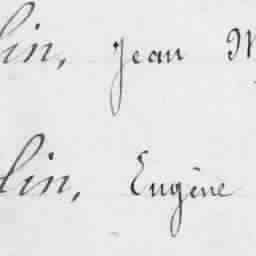 lin, Jean M
lin, Eugène